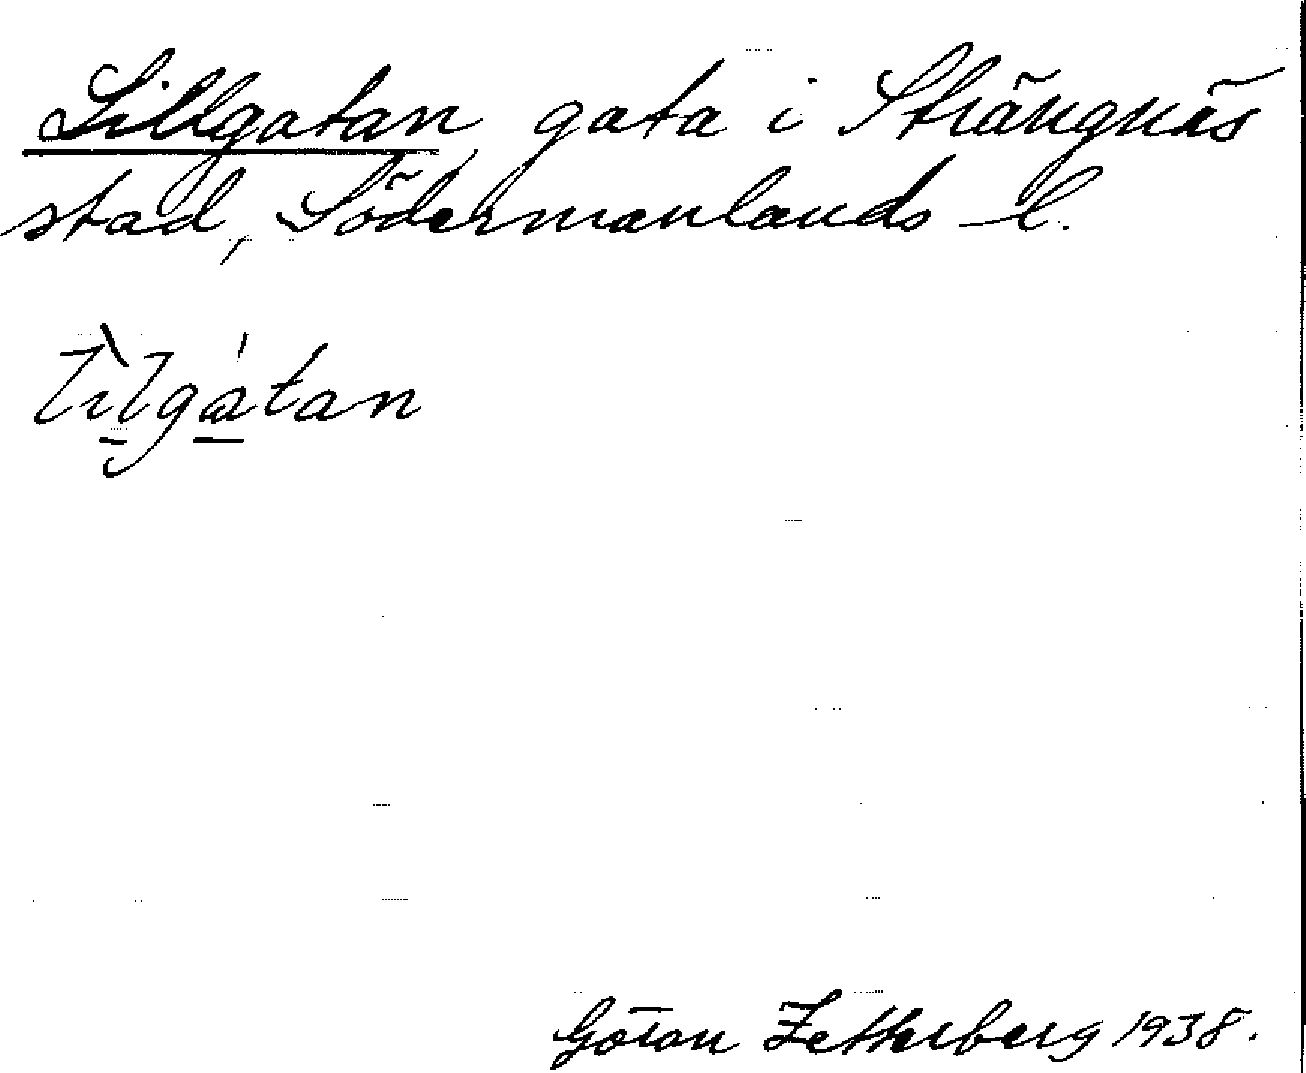 Lillgatan, gata i Strängnäs
stad, Södermanlands l.
lìlgátan
Göran Zetterberg 1938.